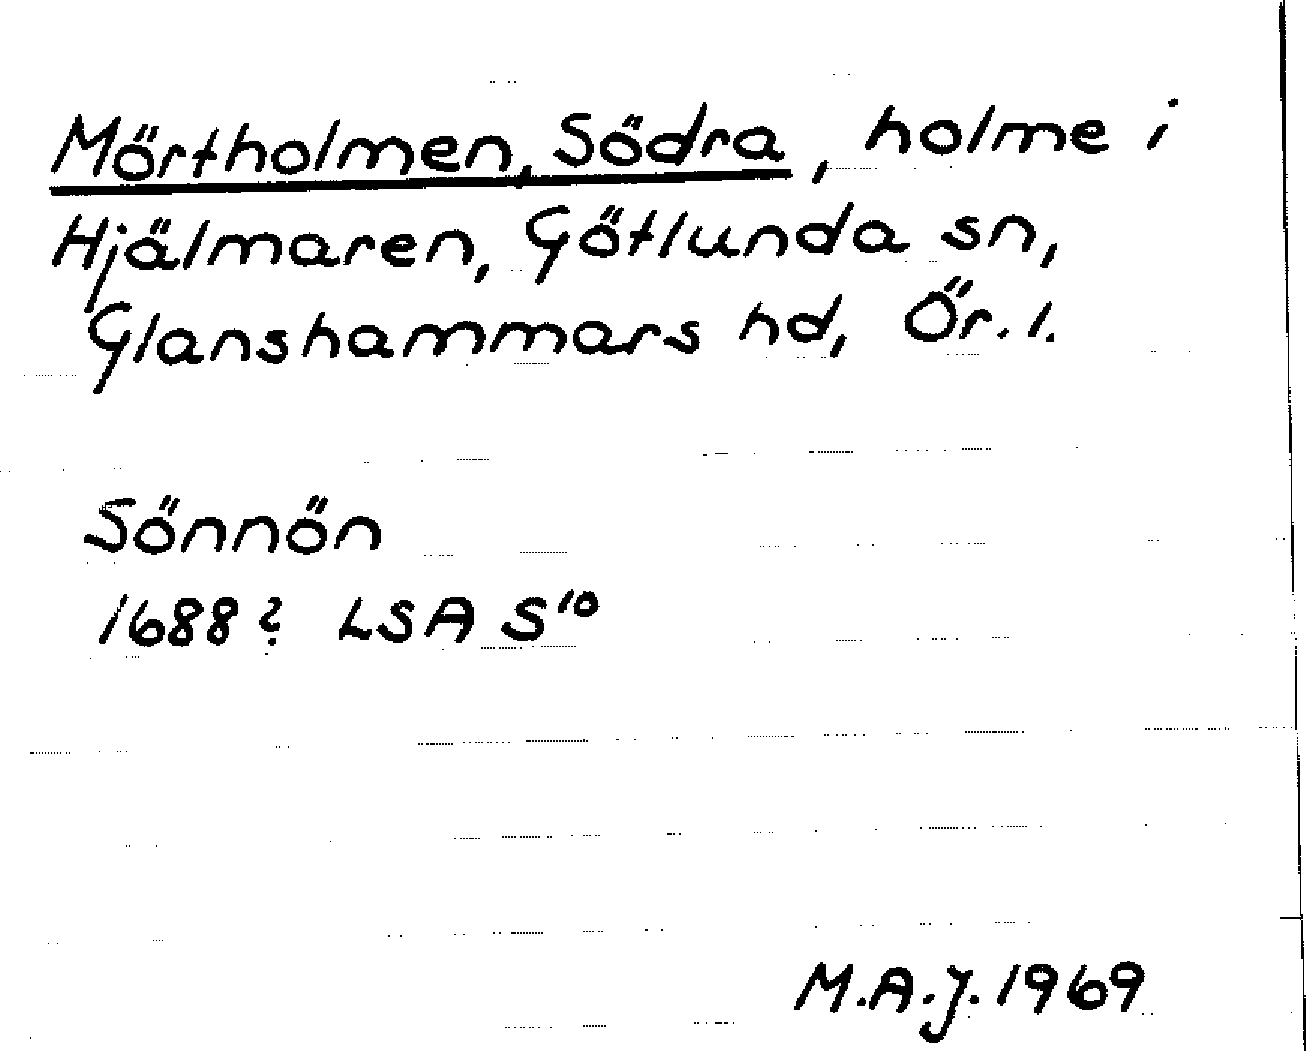 Mörtholmen, Södra, holme i
Hjälmaren, Götlunda sn,
Glanshammars hd, Ör. l.
Sönnön
1688? LSA S¹⁰
M.A.J. 1969